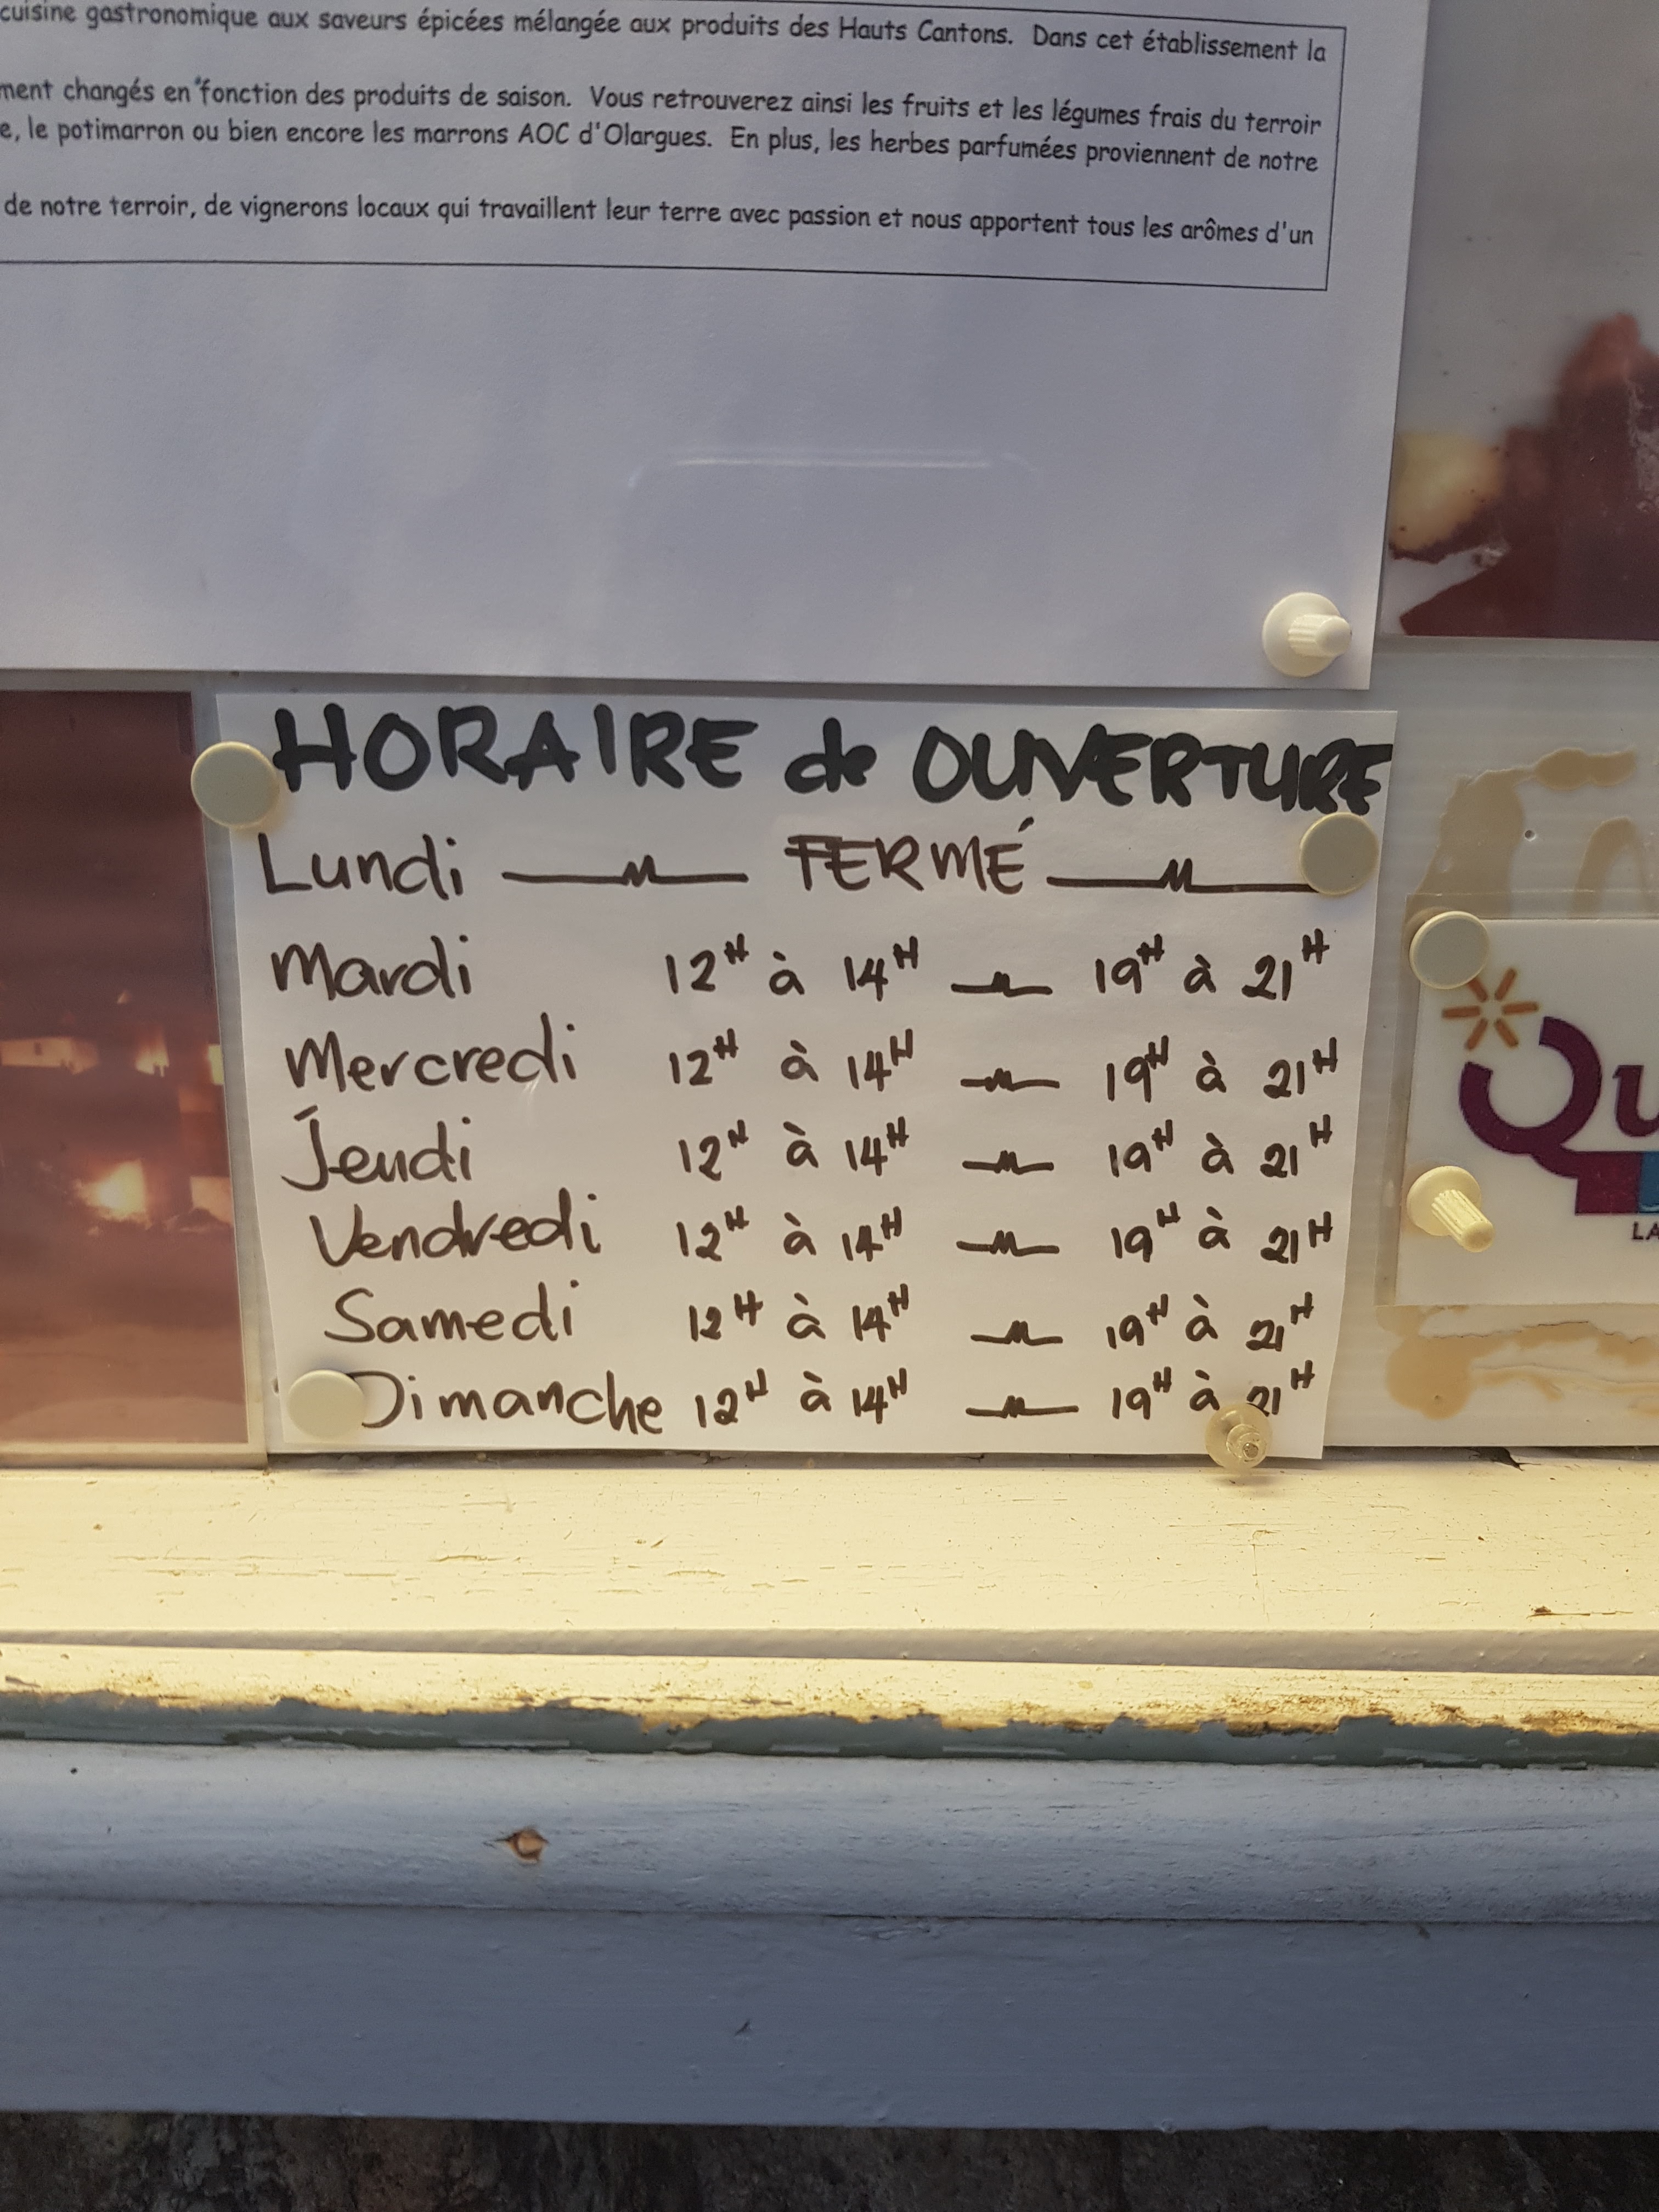 cuisine gastronomique aux saveurs épicées mélangée aux produits des Hauts Cantons. Dans cet établissement la
ment changés en fonction des produits de saison. Vous retrouverez ainsi les fruits et les légumes frais du terroir
e, le potimarron ou bien encore les marrons AOC d'Olargues. En plus, les herbes parfumées proviennent de notre
de notre terroir, de vignerons locaux qui travaillent leur terre avec passion et nous apportent tous les arômes d'un
HORAIRE de OUVERTURE
Lundi — FERMÉ —
Mardi 12H à 14H — 19H à 21H
Mercredi 12H à 14H — 19H à 21H
Jeudi 12H à 14H — 19H à 21H
Vendredi 12H à 14H — 19H à 21H
Samedi 12H à 14H — 19H à 21H
Dimanche 12H à 14H — 19H à 21H
Qu
LA